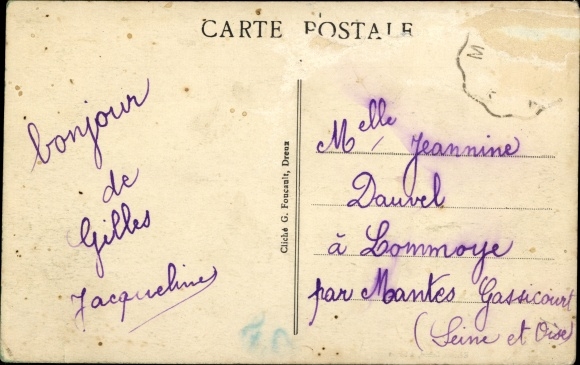 CARTE POSTALE
bonjour
de
Gilles
Jacqueline
Cliché G. Foucault, Dreux
Melle Jeannine
Dauvel
à Lommoye
par Mantes Gassicourt
(Seine et Oise)